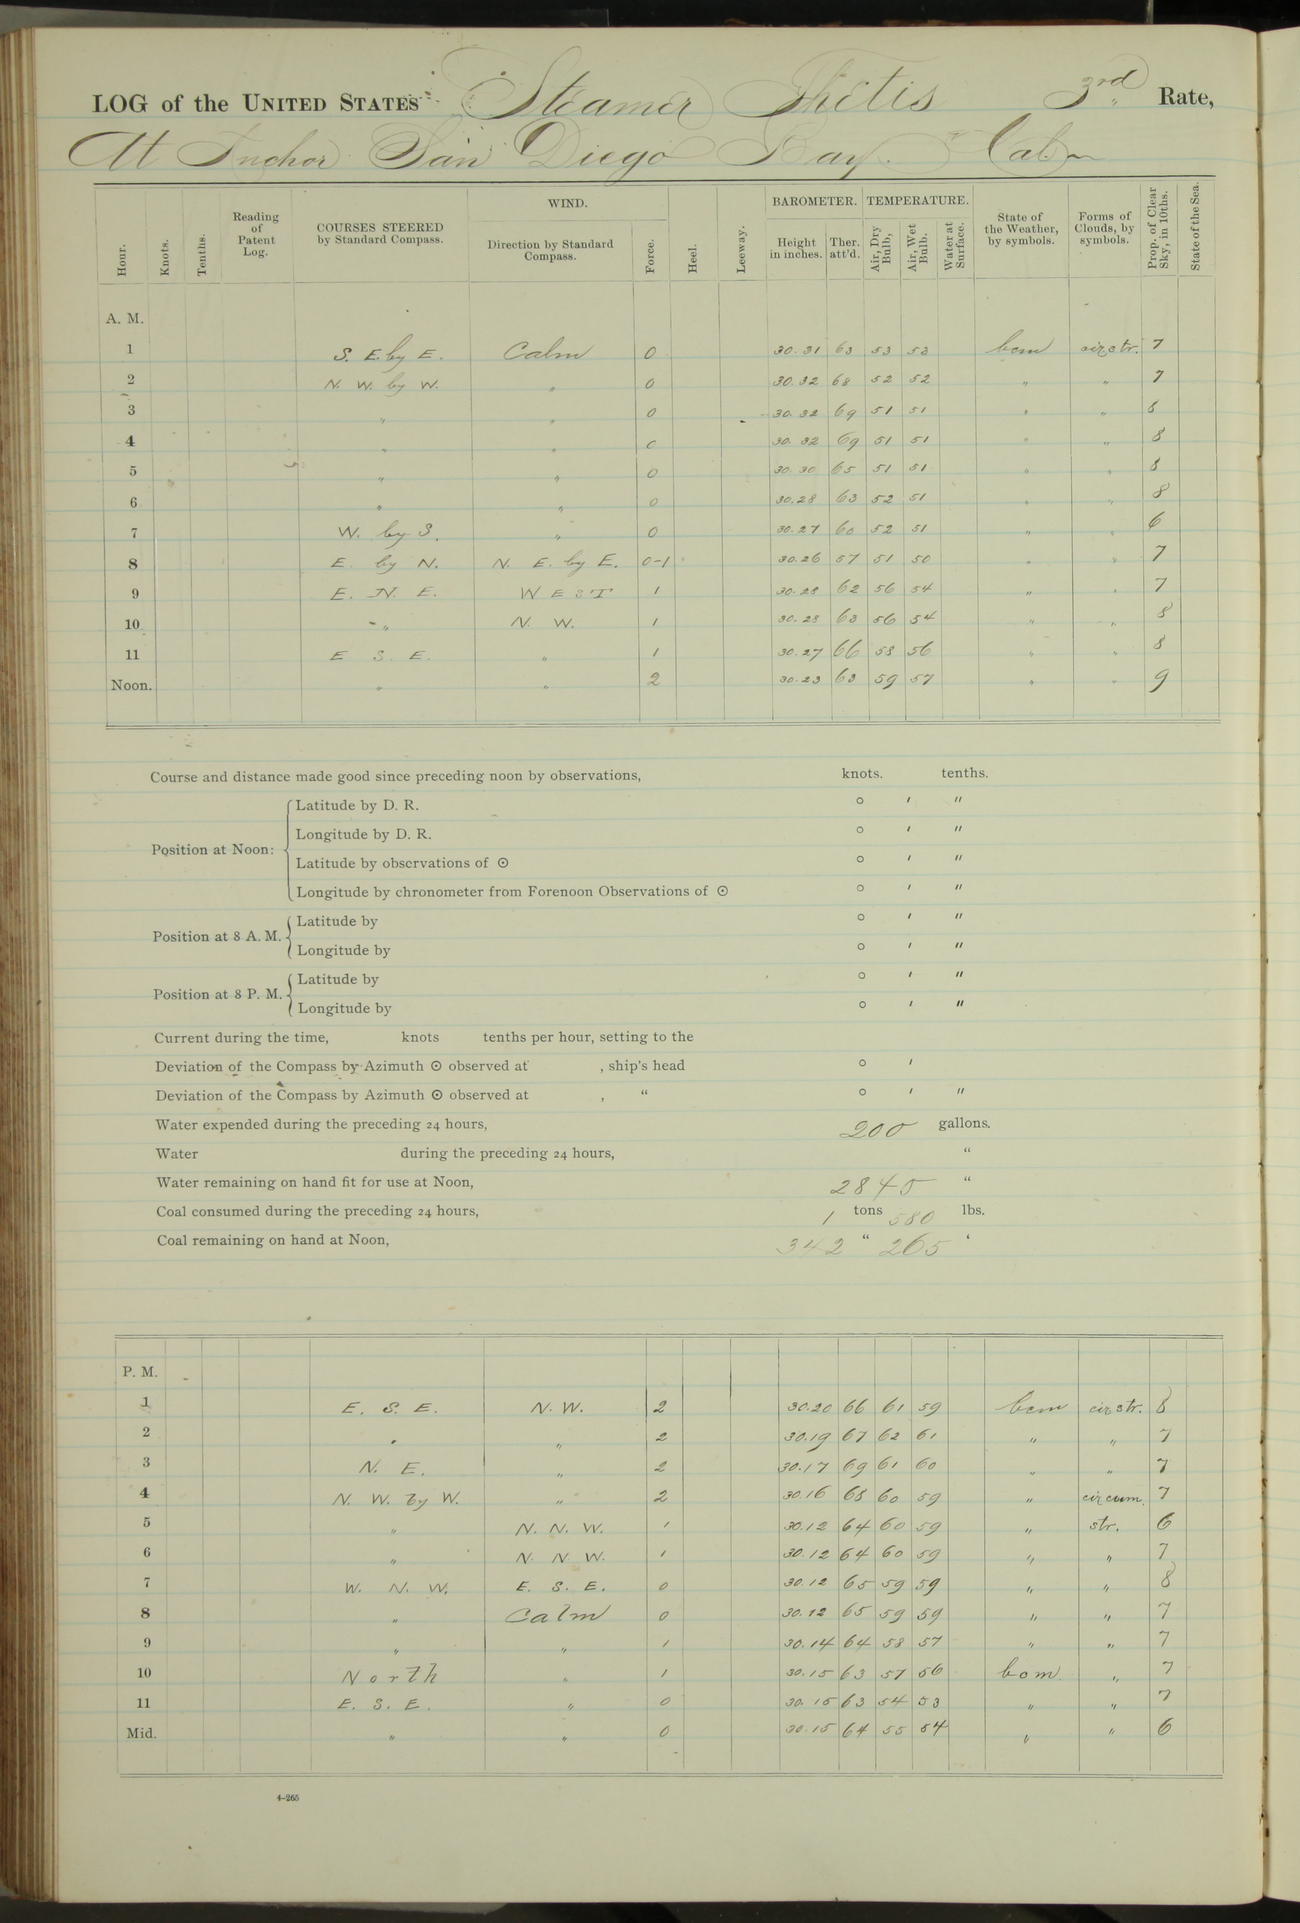 LOG of the UNITED STATES Steamer Thetis 3rd Rate,
At Anchor San Diego Bay. Cal.
Hour. Knots. Tenths. Reading of Patent Log. COURSES STEERED by Standard Compass. WIND. Direction by Standard Compass. Force. Heel. Leeway. BAROMETER. Height in inches. Ther. att'd. TEMPERATURE. Air, Dry Bulb, Air, Wet Bulb. Water at Surface. State of the Weather, by symbols. Forms of Clouds, by symbols. Prop. of Clear Sky, in 10ths. State of the Sea.
A. M.
1 S. E. by E. Calm 0 30.31 63 53 53 bcm cir str. 7
2 N. W. by W. " 0 30.32 68 52 52 " " 7
3 " " 0 30.32 69 51 51 " " 8
4 " " 0 30.32 69 51 51 " " 8
5 " " 0 30.30 65 51 51 " " 8
6 " " 0 30.28 63 52 51 " " 8
7 W. by S. " 0 30.27 60 52 51 " " 6
8 E. by N. N. E. by E. 0-1 30.26 57 51 50 " " 7
9 E. N. E. WEST 1 30.28 62 56 54 " " 7
10 " N. W. 1 30.28 63 56 54 " " 8
11 E S. E. " 1 30.27 66 58 56 " " 8
Noon. " " 2 30.23 63 59 57 " " 9
Course and distance made good since preceding noon by observations, knots. tenths.
Position at Noon: Latitude by D. R. ° ' "
Longitude by D. R. ° ' "
Latitude by observations of ☉ ° ' "
Longitude by chronometer from Forenoon Observations of ☉ ° ' "
Position at 8 A. M. Latitude by ° ' "
Longitude by ° ' "
Position at 8 P. M. Latitude by ° ' "
Longitude by ° ' "
Current during the time, knots tenths per hour, setting to the
Deviation of the Compass by Azimuth ☉ observed at , ship's head ° '
Deviation of the Compass by Azimuth ☉ observed at , " ° ' "
Water expended during the preceding 24 hours, 200 gallons.
Water during the preceding 24 hours, "
Water remaining on hand fit for use at Noon, 2845 "
Coal consumed during the preceding 24 hours, 1 tons 580 lbs.
Coal remaining on hand at Noon, 342 " 265 "
P. M.
1 E. S. E. N. W. 2 30.20 66 61 59 bcm cir str. 8
2 " " 2 30.19 67 62 61 " " 7
3 N. E. " 2 30.17 69 61 60 " " 7
4 N. W. by W. " 2 30.16 68 60 59 " cir cum. 7
5 " N. N. W. 1 30.12 64 60 59 " str. 6
6 " N. N. W. 1 30.12 64 60 59 " " 7
7 W. N. W. E. S. E. 0 30.12 65 59 59 " " 8
8 " Calm 0 30.12 65 59 59 " " 7
9 " " 1 30.14 64 58 57 " " 7
10 North " 1 30.15 63 57 56 bcm. " 7
11 E. S. E. " 0 30.15 63 54 53 " " 7
Mid. " " 0 30.15 64 55 54 " " 6
4-265